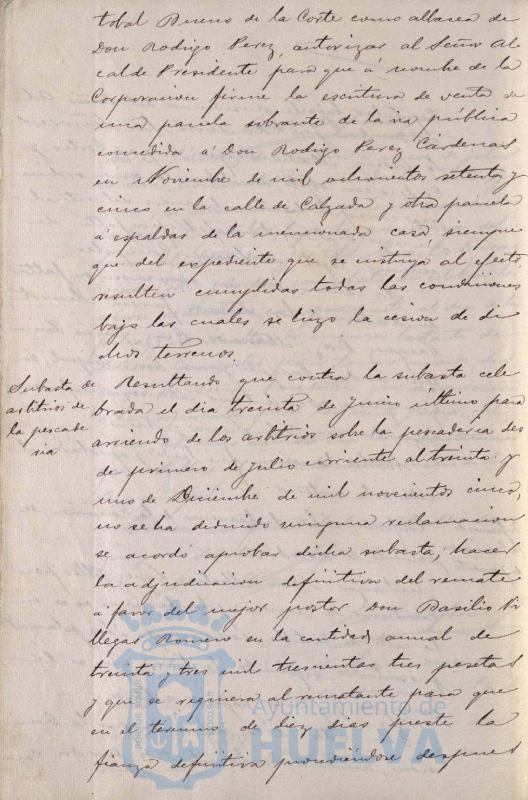 tobal Bueno de la Corte como albacea de
Don Rodrigo Perez, autorizar al Señor Al
calde Presidente para que á nombre de la
Corporacion firme la escritura de venta de
una parcela sobrante de la via pública
concedida á Don Rodrigo Perez Cárdenas
en Noviembre de mil ochocientos setenta y
cinco en la calle de Calzada y otra parcela
á espaldas de la mencionada casa, siempre
que del expediente que se instruya al efecto
resulten cumplidas todas las condiciones
bajo las cuales se hizo la cesion de di
chos terrenos.
Subasta de
arbitrios de
la pescade
ria
Resultando que contra la subasta cele
brada el dia treinta de Junio último para
arriendo de los arbitrios sobre la pescaderia des
de primero de Julio corriente al treinta y
uno de Diciembre de mil novecientos cinco
no se ha deducido ninguna reclamacion
se acordó aprobar dicha subasta, hacer
la adjudicacion definitiva del remate
á favor del mejor postor Don Basilio Vi
llegas Romero en la cantidad anual de
treinta y tres mil trescientas tres pesetas
y que se requiera al rematante para que
en el termino de diez dias preste la
fianza definitiva procediéndose despues
Ayuntamiento de
HUELVA